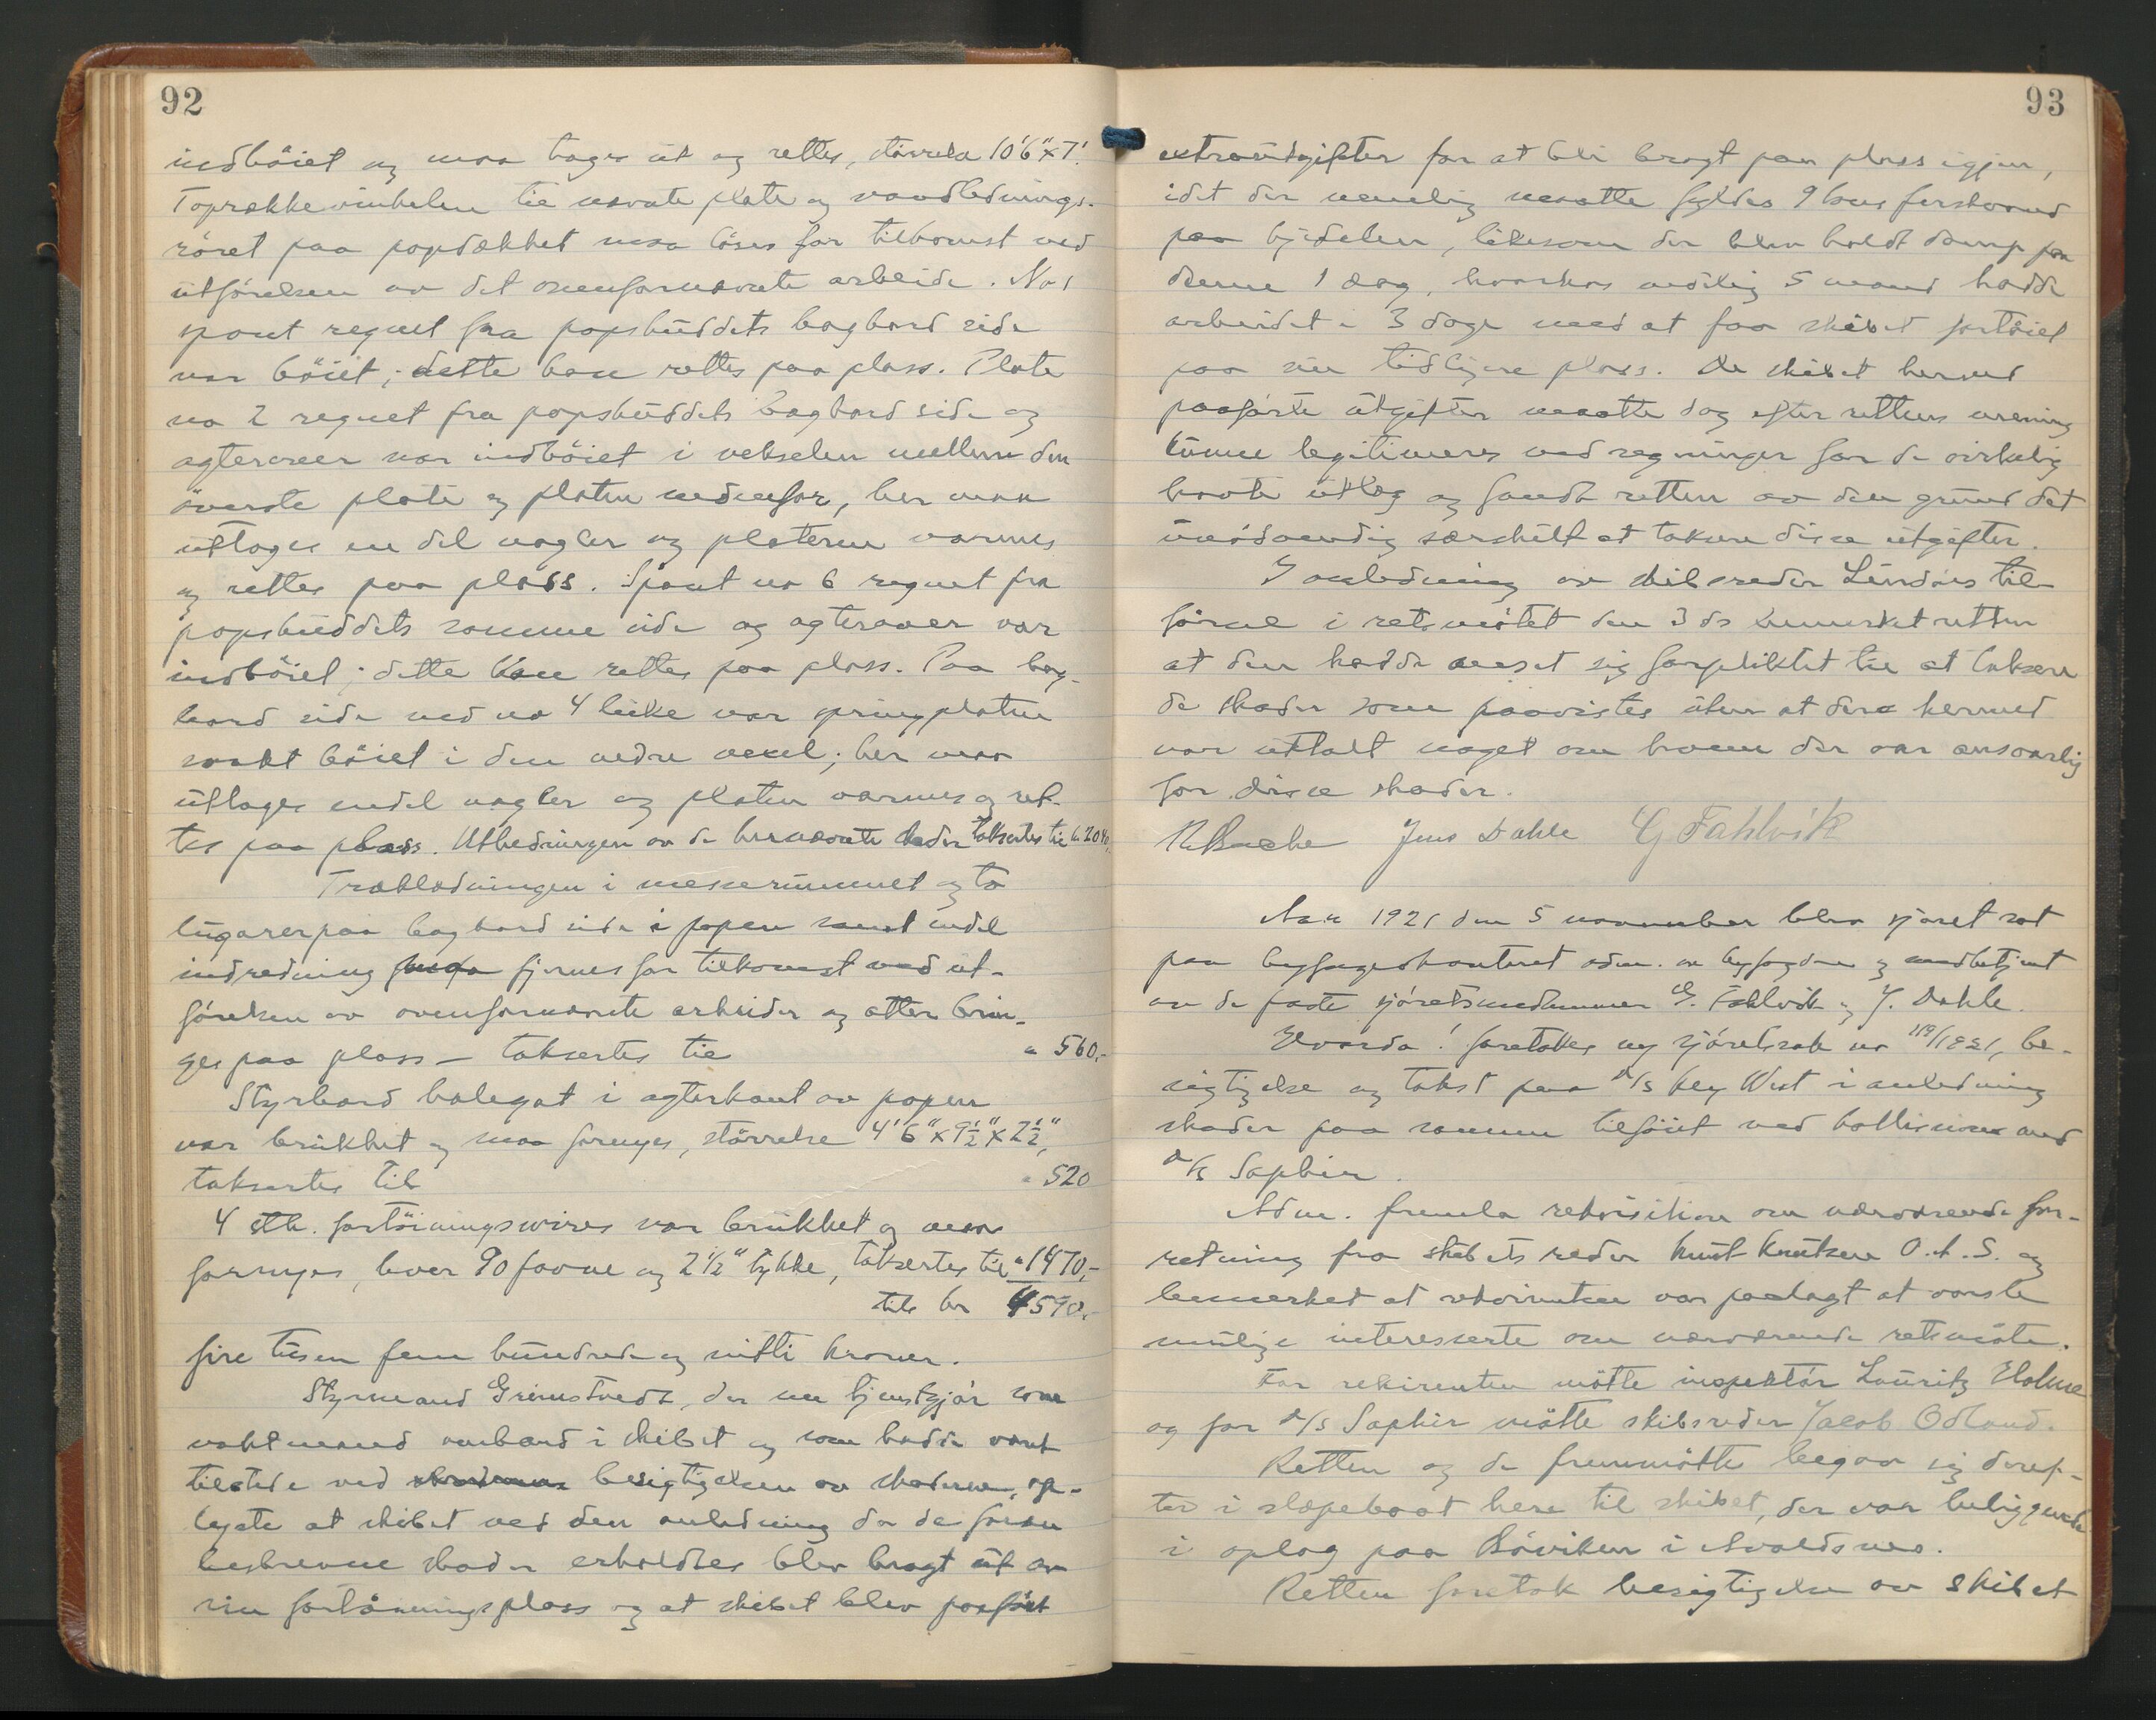 92
indbøiet og maa tages ut og rettes, størrelse 10'6" x 7'.
Toprækkevinkelen til nævnte plate og vandlednings-
röret paa popdækket maa löses for tilkomst ved
utførelsen av det ovenfornævnte arbeide. No 1
spant regnet fra popskuddets bagbord side
var böiet; dette kan rettes paa plass. Plate
no 2 regnet fra popskuddets bagbord side og
agterover var indböiet i vekselen mellem den
överste plate og platen nedenfor, her maa
uttages en del nagler og platerne varmes
og rettes paa plass. Spant no 6 regnet fra
popskuddets samme side og agterover var
indböiet; dette kan rettes paa plass. Paa bag-
bord side ved no 4 luke var springplaten
svakt böiet i den nedre veksel; her maa
uttages endel nagler og platen varmes og ret-
tes paa plass. Utbedringen av de her nævnte skader taksertes til kr 2040,
Træklædningen i messerummet og to
lugarer paa bagbord side i popen samt endel
indredning maa fjernes for tilkomst ved ut-
førelsen av ovenfornævnte arbeider og atter brin-
ges paa plass — taksertes til " 560,-
Styrbord halegat i agterkant av popen
var brukket og maa fornyes, störrelse 4'6" x 9½" x 2½",
taksertes til " 520
4 stk. fortöiningswires var brukket og maa
fornyes, hver 90 favne og 2½" tykke, taksertes til " 1470,-
tils kr 4590,-
fire tusen fem hundrede og nitti kroner.
Styrmand Grimstvedt, der nu tjenestgjør som
vaktmand ombord i skibet og som hadde været
tilstede ved besigtigelsen av skaderne, op-
lyste at skibet ved den anledning da de foran
beskrevne skader erholdtes blev bragt ut av
sin fortöiningsplass og at skibet blev paaført
93
extrautgifter for at bli bragt paa plass igjen,
idet der nemlig maatte fyldes 9 tons ferskvand
paa kjedelen, likesom der blev holdt damp paa
denne 1 dag, hvorhos endelig 5 mand hadde
arbeidet i 3 dage med at faa skibet fortöiet
paa sin tidligere plass. De skibet herved
paaførte utgifter maatte dog efter rettens mening
kunne legitimeres ved regninger for de virkelig
havte utlæg og fandt retten av den grund det
unödvendig særskilt at taksere disse utgifter.
I anledning av skibsreder Lindøes til-
førsel i retsmötet den 3 ds bemerket retten
at den hadde anset sig forpliktet til at taksere
de skader som paavistes uten at dere hermed
var uttalt noget om hvem der var ansvarlig
for disse skader.
R Bache Jens Dahle G Fahlvik
Aar 1921 den 5 november blev sjøret sat
paa byfogedkontoret adm. av byfogden og medbetjent
av de faste sjøretsmedlemmer G. Fahlvik og J. Dahle.
Hvorda! foretokes ny sjøretssak no 119/1921, be-
sigtigelse og takst paa D/S Key West i anledning
skader paa samme tilföiet ved kollision med
D/S Saphir.
Adm. fremla rekvisition om nærværende for-
retning fra skibets reder Knut Knutsen O.A.S. og
bemerket at rekvirenten var paalagt at varsle
mulige interesserte om nærværende retsmöte.
For rekirenten mötte inspektör Lauritz Holme
og for D/S Saphir mötte skibsreder Jacob Odland.
Retten og de fremmötte begav sig deref-
ter i slæpebaat hen til skibet, der var beliggende
i oplag paa Bøviken i Avaldsnes.
Retten foretok besigtigelse av skibet